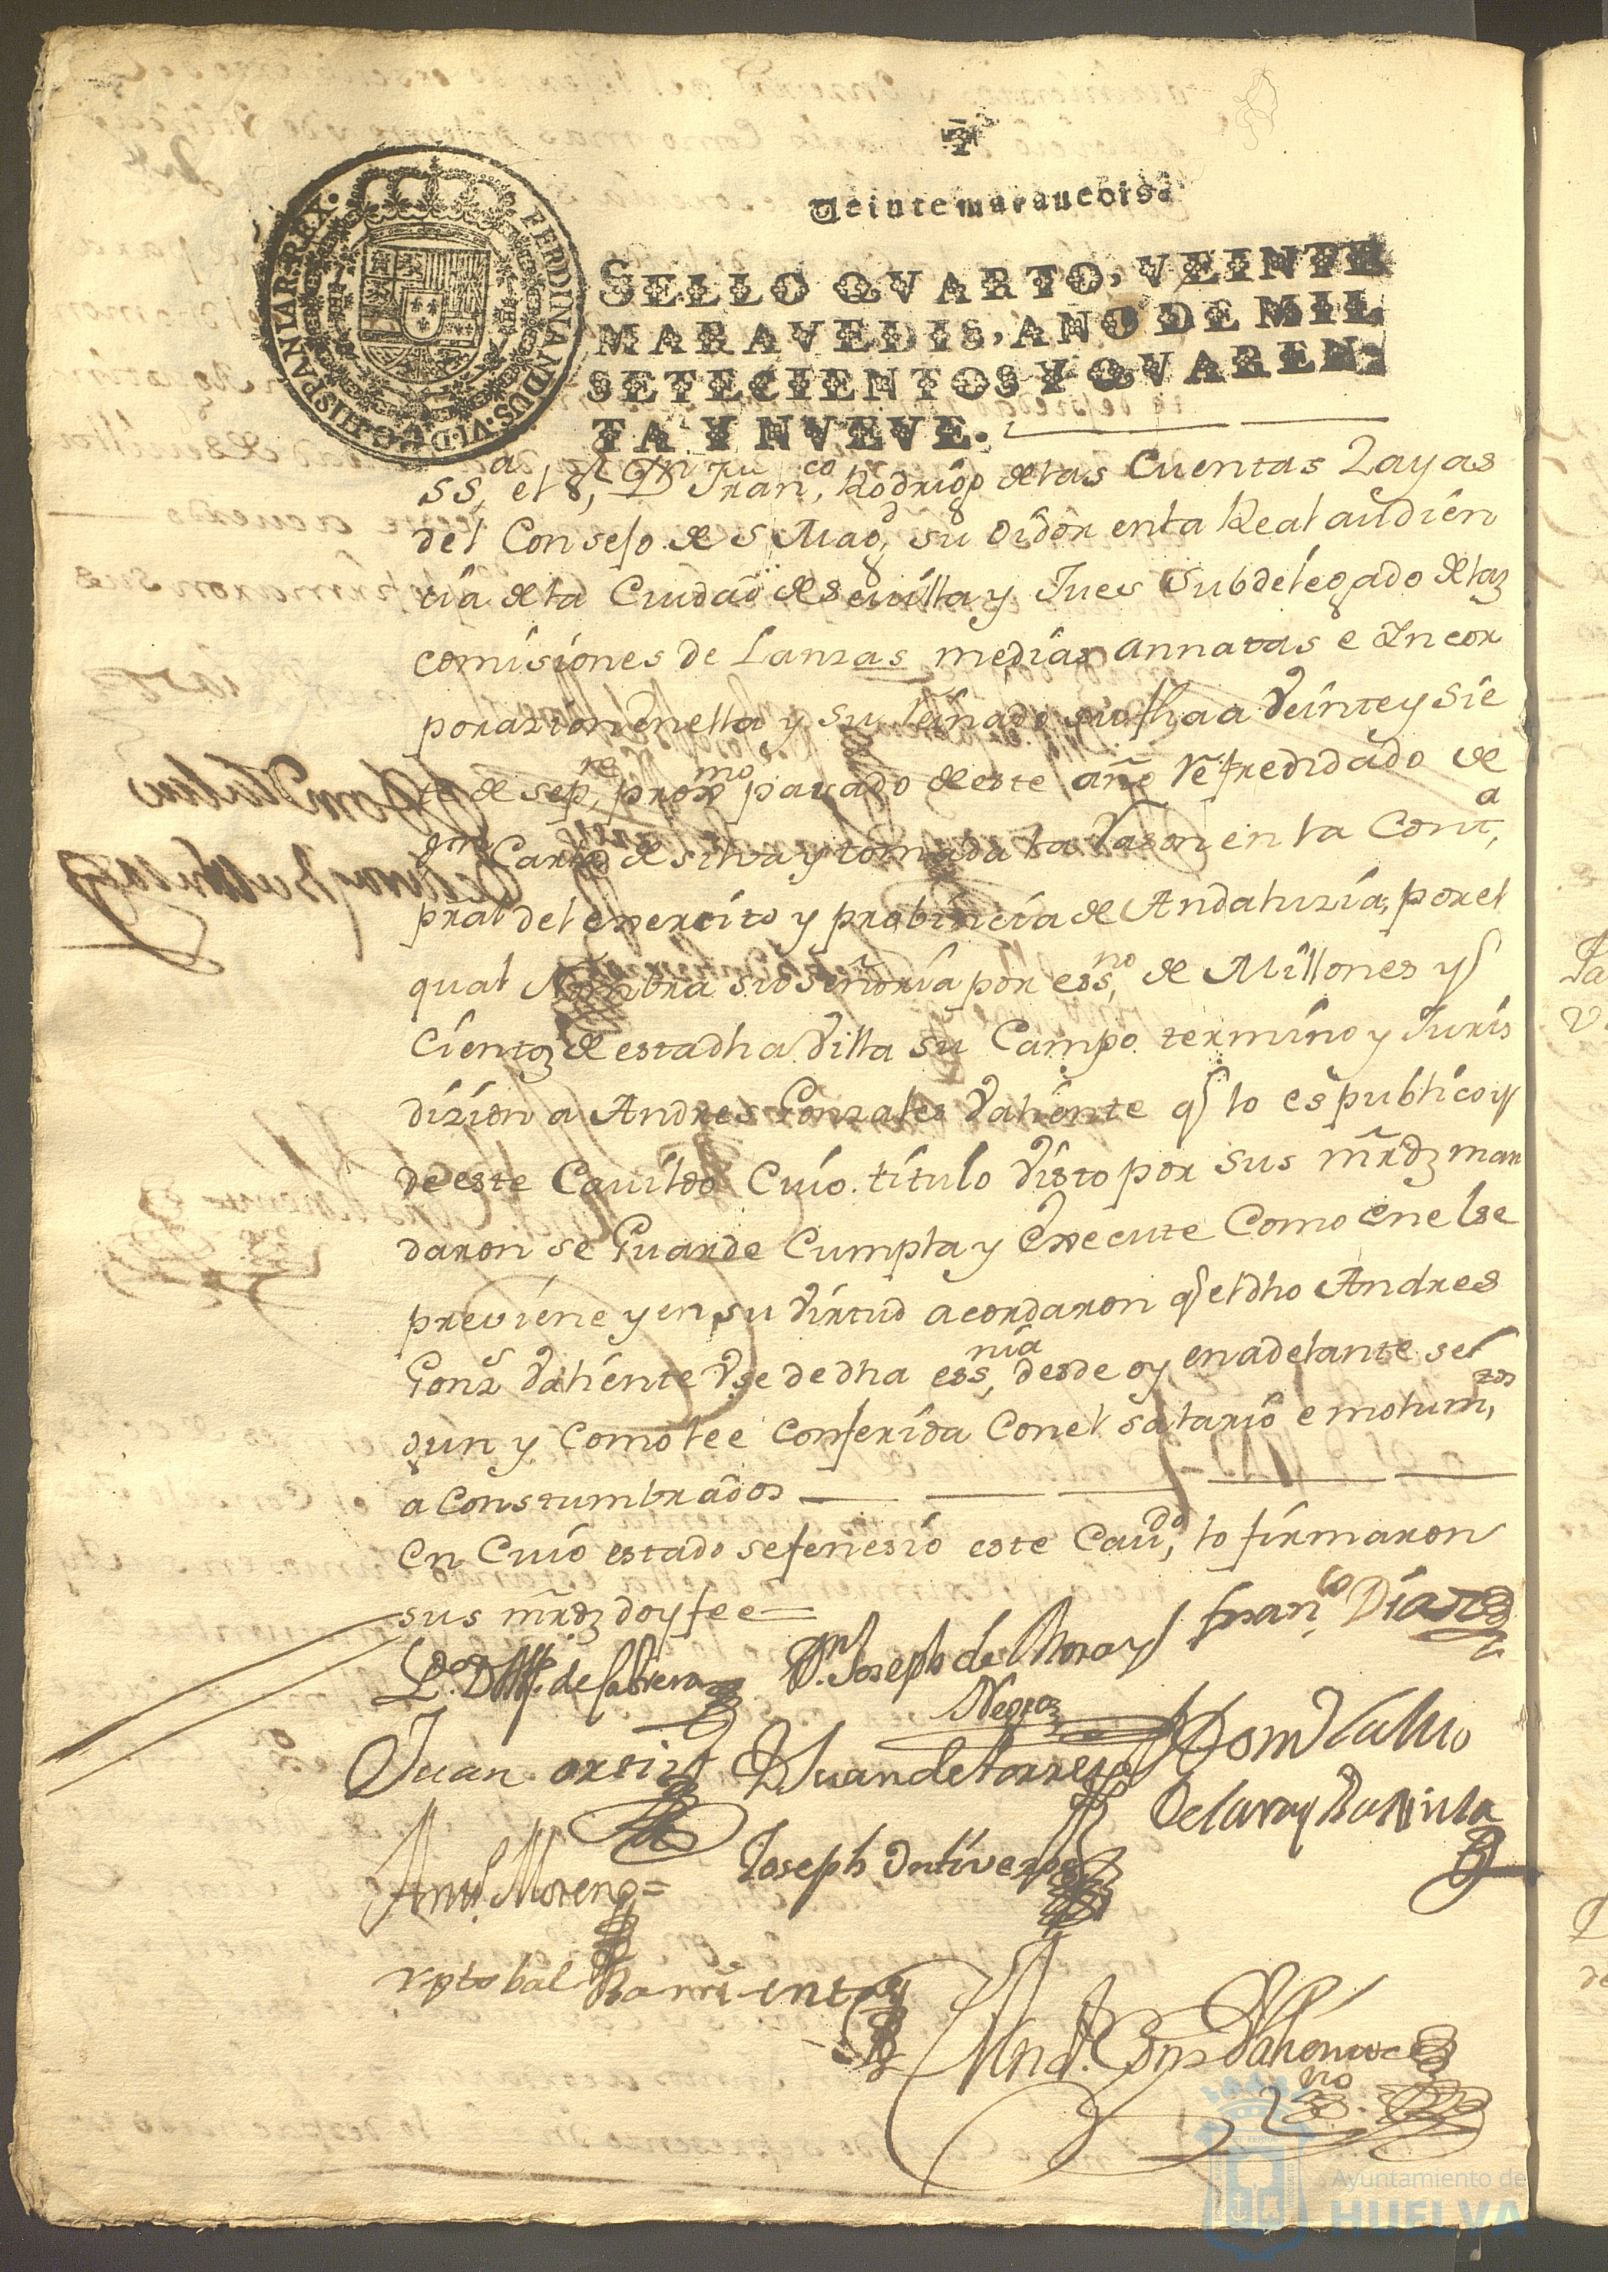 Veinte maravedis.
SELLO QVARTO, VEINTE
MARAVEDIS, AÑO DE MIL
SETECIENTOS Y QVAREN-
TA Y NVEVE.
FERDINANDUS·VI·D·G·HISPANIAR·REX·
SSª, el Sr, Dn Franco, Rodrigz de las Cuentas Zayas
del Consejo de S Magd, su oidor en la Real audien
cia de la Ciudad de Sevilla y Jues Subdelegado de laz
comisiones de Lanzas medias annatas e Incor
porazion en ella y su Reinado su fha a Veinte y Sie
te de sepre, proxmo pasado de este año Refredidado de
Carlos de silva y tomada la Rason en la Contª,
pral del exercito y probincia de Andaluzia, por el
qual Nombra su Señoria por essno, de Millones y
Cientoz de esta dha Villa su Campo termino y Juris
dizion a Andres Gonzales Valiente q lo es publico y
de este Cavildo Cuio titulo Visto por sus mrdz man
daron se Guarde Cumpla y Execute Como en el se
previene y en su Virtud acordaron q el dho Andres
Gonz Valiente Vse de dha essnia, desde oy en adelante se
gun y Como le e Conferida Con el salario e molumtos,
a Constumbrados
En Cuio estado se fenesio este Cavdo, lo firmaron
sus mrdz doy fee =
Ldo. D de Cabrera Dn. Joseph de Mora y Negro Franco Diaz
Juan ortiz Juan de torres Dom Calvo
de la Vara y
Anto. Moreno = Joseph Ontiveros
Xptobal Barrientos
And. Gonz Valiente
sno
Ayuntamiento de
HUELVA